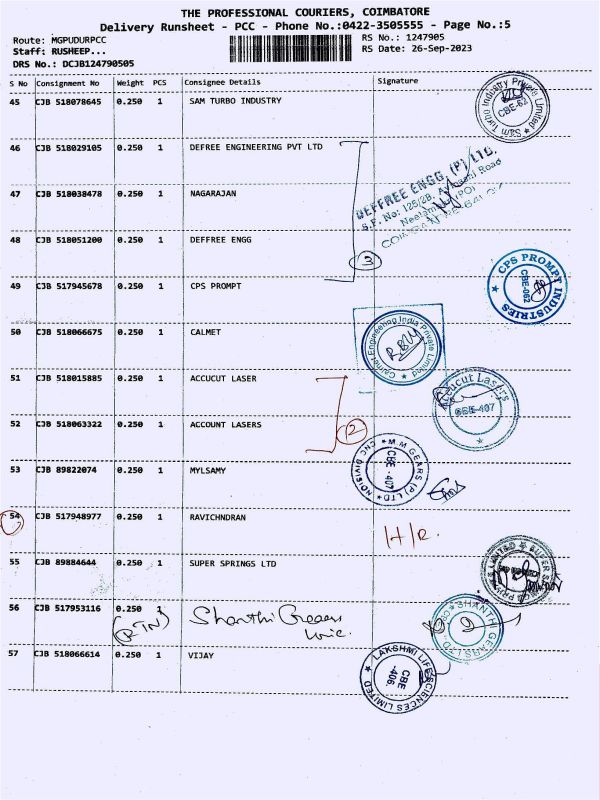 THE PROFESSIONAL COURIERS, COIMBATORE
Delivery Runsheet - PCC - Phone No.:0422-3505555 - Page No.:5
Route: MGPUDURPCC
RS No.: 1247905
Staff: RUSHEEP...
RS Date: 26-Sep-2023
DRS No.: DCJB124790505
S No Consignment No Weight PCS Consignee Details Signature
45 CJB 518078645 0.250 1 SAM TURBO INDUSTRY
Sam Turbo Industry Private Limited
CBE-62
46 CJB 518029105 0.250 1 DEFREE ENGINEERING PVT LTD
DEFFREE ENGG. (P) LTD.
S.F. No: 125/2B, Road
47 CJB 518038478 0.250 1 NAGARAJAN
48 CJB 518051200 0.250 1 DEFFREE ENGG
3
49 CJB 517945678 0.250 1 CPS PROMPT
CPS PROMPT INDUSTRIES
CBE-062
50 CJB 518066675 0.250 1 CALMET
Calmet Engineering India Private Limited
51 CJB 518015885 0.250 1 ACCUCUT LASER
Accucut Lasers
CBE-407
52 CJB 518063322 0.250 1 ACCOUNT LASERS
2
53 CJB 89822074 0.250 1 MYLSAMY
M.M GEARS (P) LTD
CNC DIVISION
CBE - 407
54 CJB 517948977 0.250 1 RAVICHNDRAN
H/R.
55 CJB 89884644 0.250 1 SUPER SPRINGS LTD
56 CJB 517953116 0.250 1
(RTN) Shanthi Gears
SHANTHI GEARS LTD
57 CJB 518066614 0.250 1 VIJAY
LAKSHMI LIFE SCIENCES LIMITED
CBE
-406